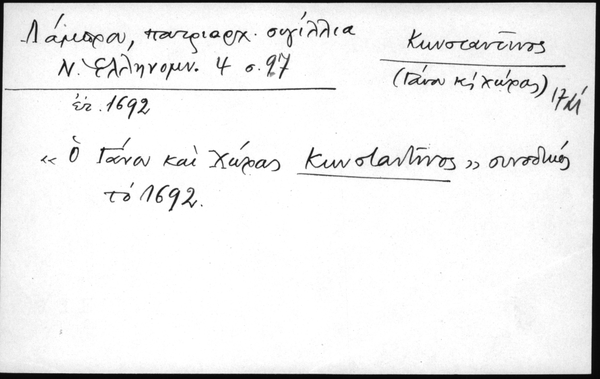 Λάμπρου, πατριαρχ. σιγίλλια
Ν. Ἑλληνομν. 4 σ. 97
Κωνσταντῖνος
(Γάνου κὶ χώρας)
ἔτ. 1692
« ὁ Γάνου καὶ Χώρας Κωνσταντῖνος » συνοδικός
τὸ 1692.